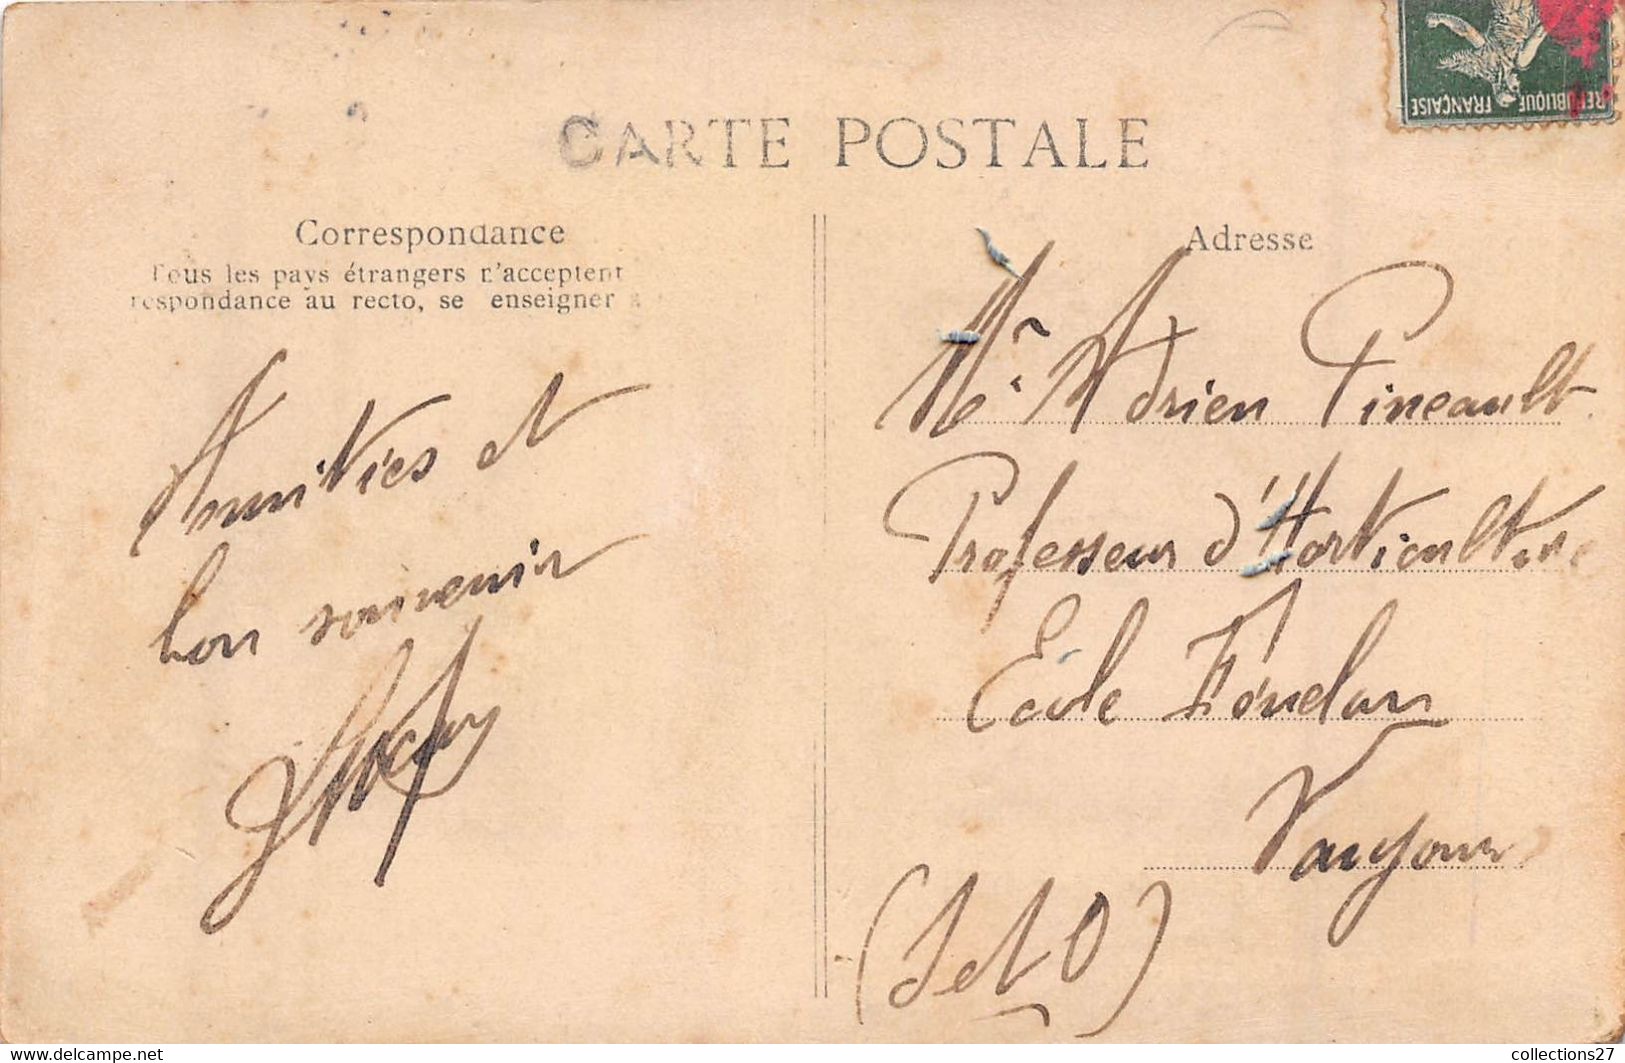 RÉPUBLIQUE FRANÇAISE
CARTE POSTALE
Correspondance
Tous les pays étrangers n'acceptent
respondance au recto, se enseigner
Amitiés et
bon souvenir
Adresse
Mr Adrien Pineault
Professeur d'Horticulture
Ecole Fénelon
Vaujours
(S et O)
https://www.delcampe.net
collections27